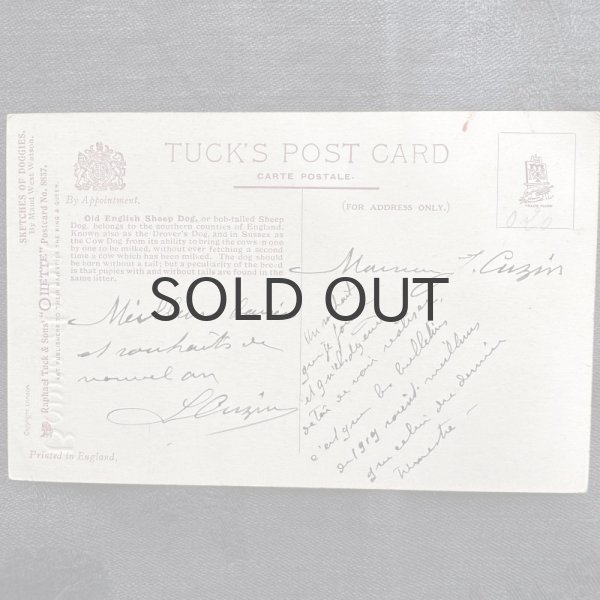 TUCK'S POST CARD
CARTE POSTALE.
(FOR ADDRESS ONLY.)
By Appointment.
SKETCHES OF DOGGIES.
By Maud West Watson.
Raphael Tuck & Sons' "OILETTE" Postcard No. 8837.
ART PUBLISHERS TO THEIR MAJESTIES THE KING & QUEEN.
Printed in England.
Old English Sheep Dog, or bob-tailed Sheep
Dog, belongs to the southern counties of England.
Known also as the Drover's Dog, and in Sussex as
the Cow Dog from its ability to bring the cows one
by one to be milked, without ever fetching a second
time a cow which has been milked. The dog should
be born without a tail; but a peculiarity of the breed
is that pupies with and without tails are found in the
same litter.
SOLD OUT
et souhaits de
nouvel an
L Cuzin
J. Cuzin
de voir réaliser
c'est que les bulletins
de 1919 soient meilleurs
que celui du dernier
trimestre